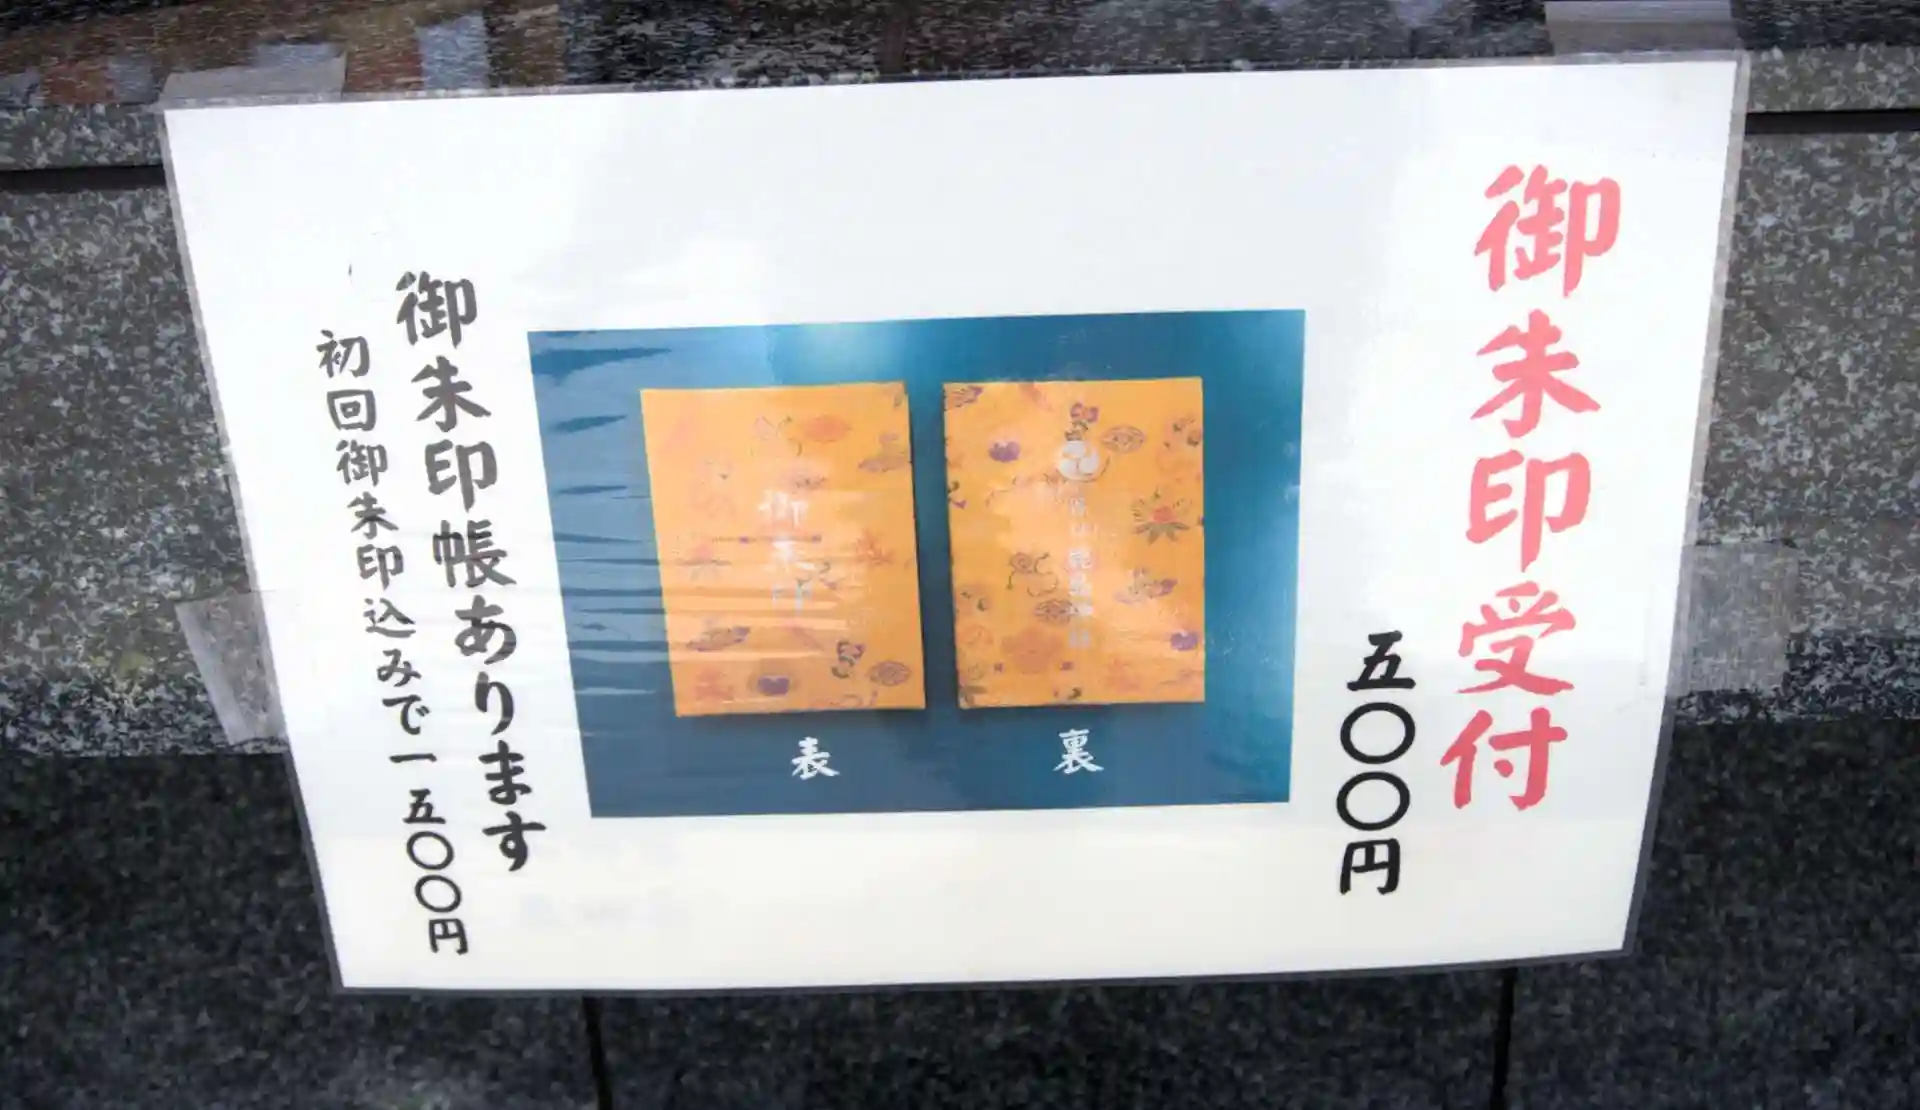 御朱印受付
五〇〇円
裏
御朱印
表
御朱印帳あります
初回御朱印込みで一五〇〇円